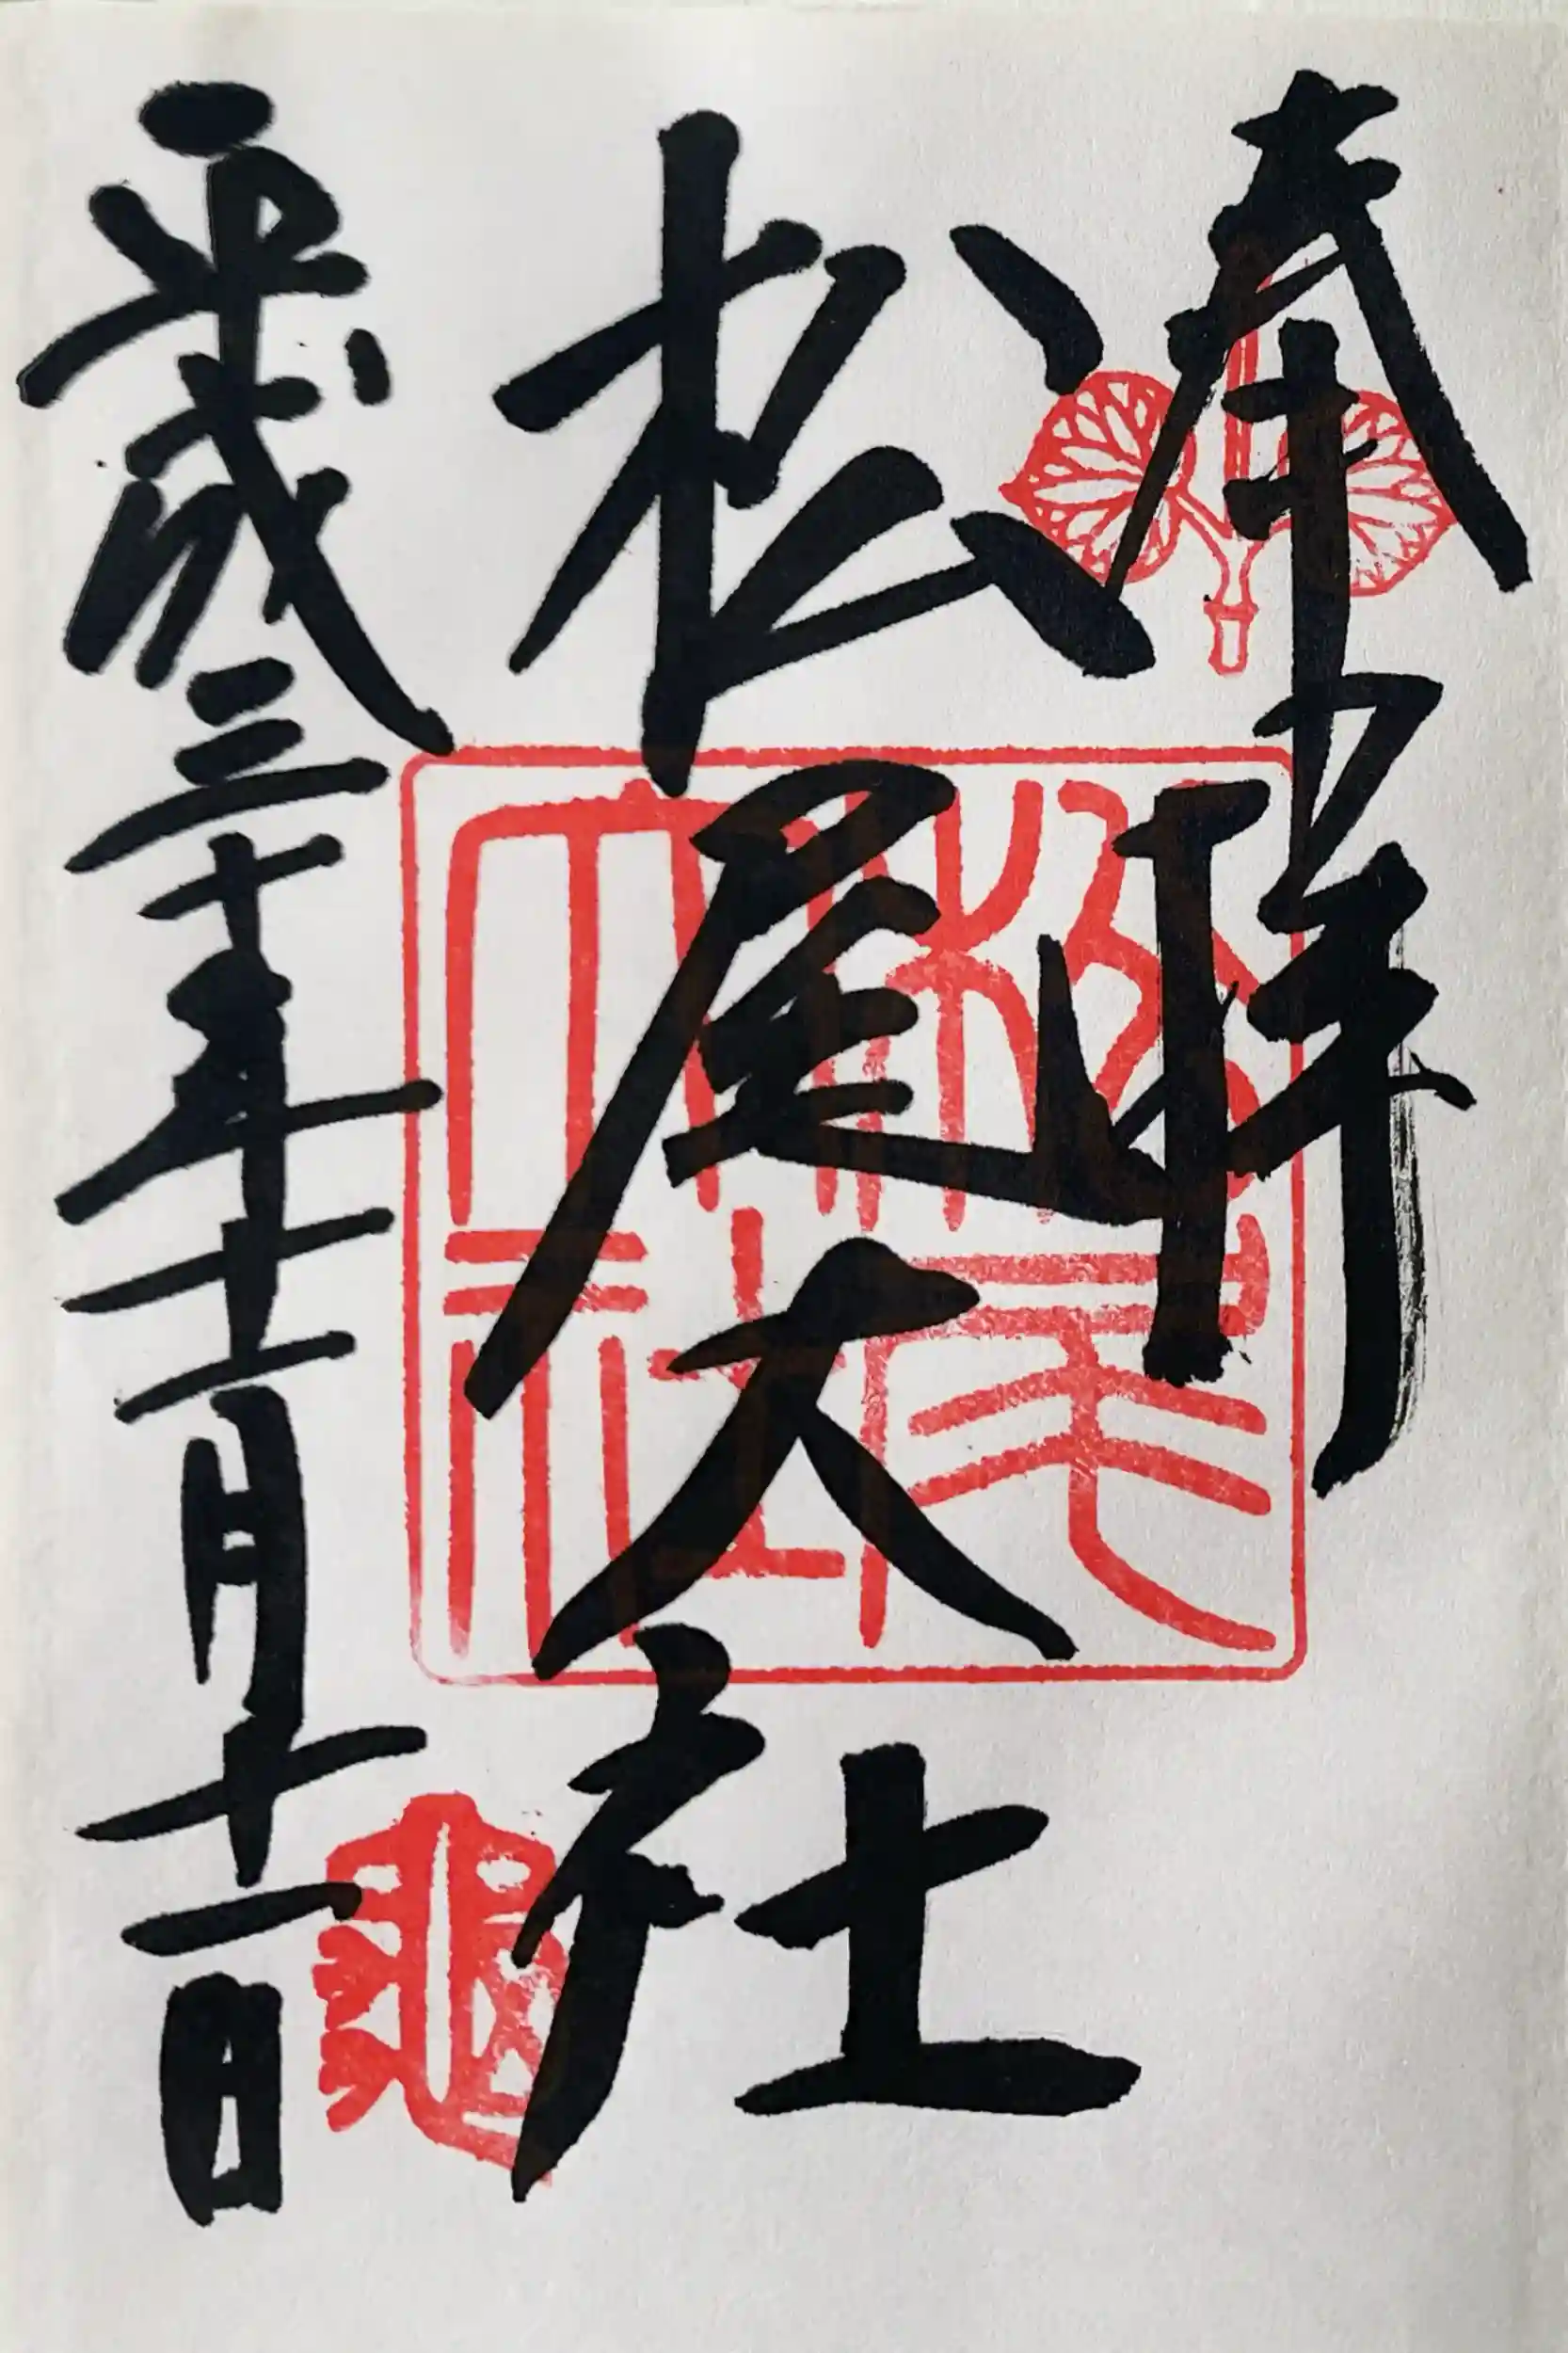 奉拝
松尾大社
平成三十年十一月十一日
松尾
大社